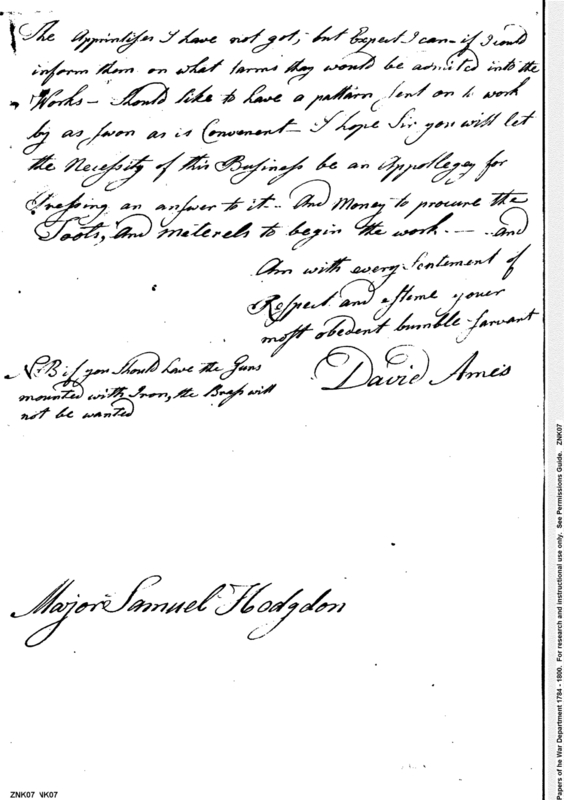 The Apprintises I have not got, but Expect I can - if I could
inform them on what tarms they would be admited into the
Works - Should like to have a pattarn sent on to work
by as swon as is Convenent - I hope Sir you will let
the Necessity of this Business be an Appollegey for
Pressing an answer to it - And Money to procure the
Tools, And meterels to begin the work - - and
Am with every Sentement of
Respect and esteme youer
most obedent humble Sarvant
David Ames
N.B if you should have the Guns
mounted with Iron, the Brass will
not be wanted
Major Samuel Hodgdon
Papers of he War Department 1784 - 1800. For research and instructional use only. See Permissions Guide. ZNK07
ZNK07 NK07